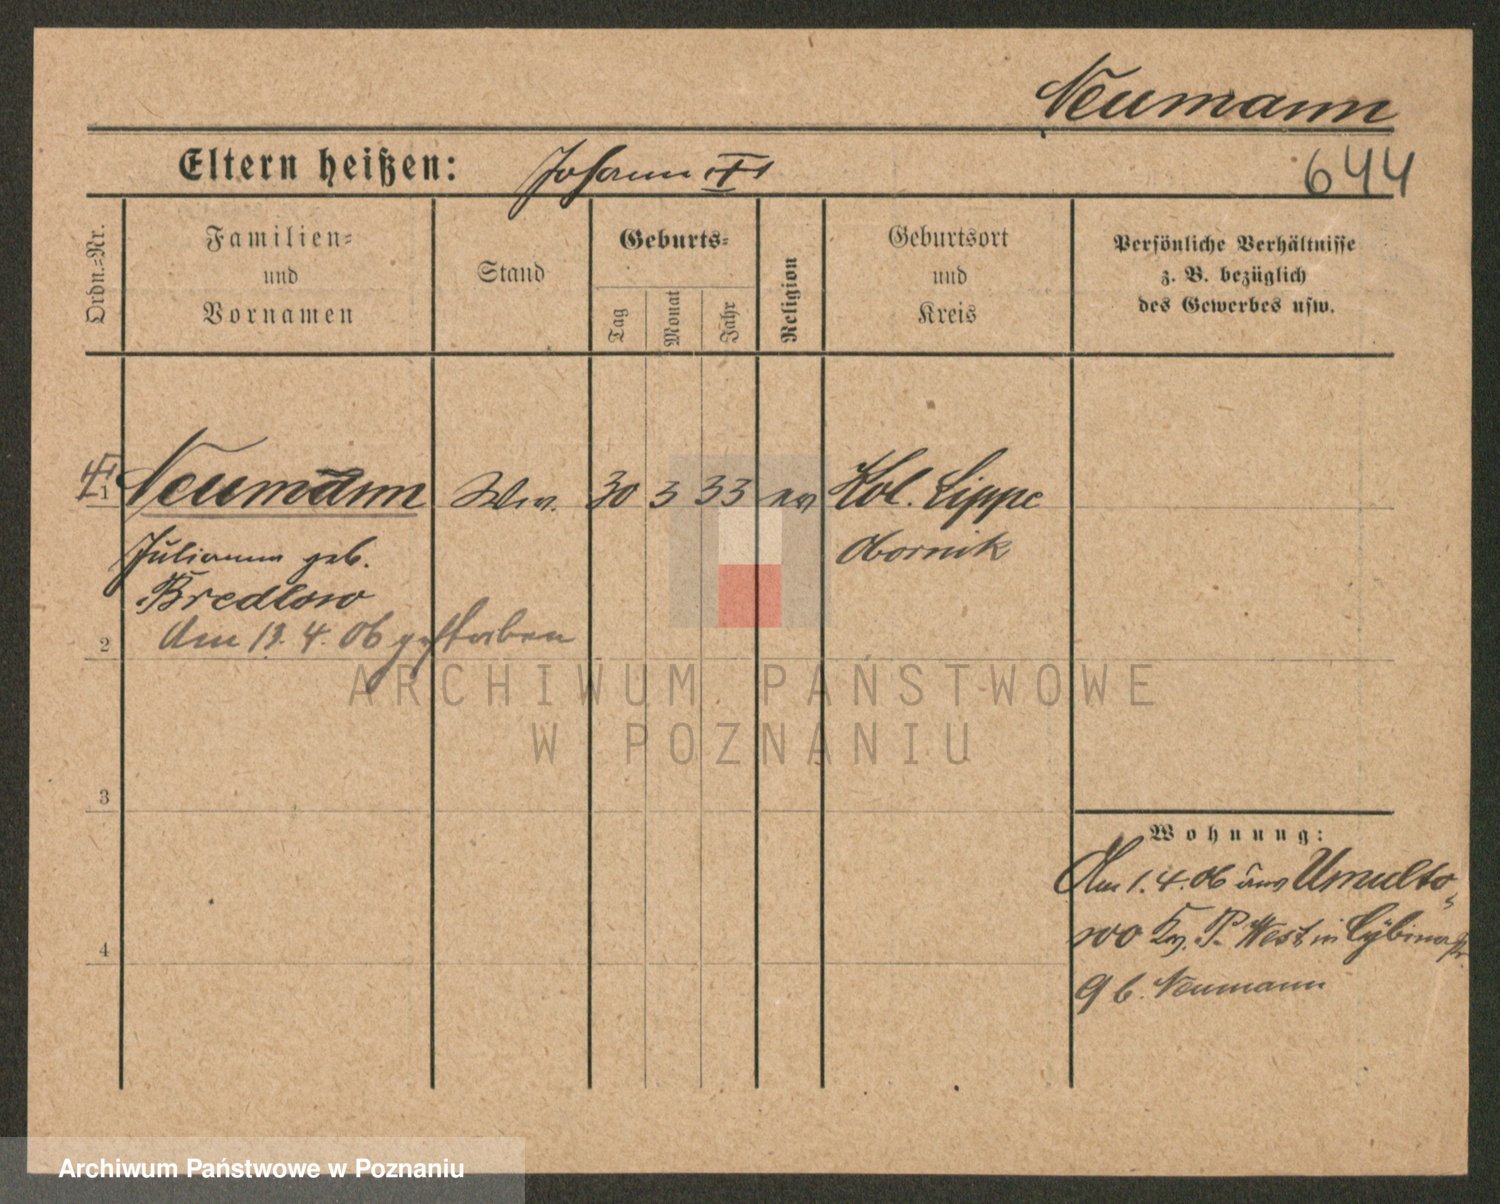 Neumann
Eltern heißen: Johann
644
Ordn.-Nr.
Familien-
und
Vornamen
Stand
Geburts-
Tag
Monat
Jahr
Religion
Geburtsort
und
Kreis
Persönliche Verhältnisse
z. B. bezüglich
des Gewerbes usw.
1 Neumann Ww. 30 3 33 ev Kol. Lippe
Julianna geb. Obornik
Bredlow
Am 13. 4. 06 gestorben
2
3
4
ARCHIWUM PAŃSTWOWE
W POZNANIU
Wohnung:
Am 1. 4. 06 aus Umulto-
wo Kr. P. West in Cybinastr
9 b. Neumann
Archiwum Państwowe w Poznaniu